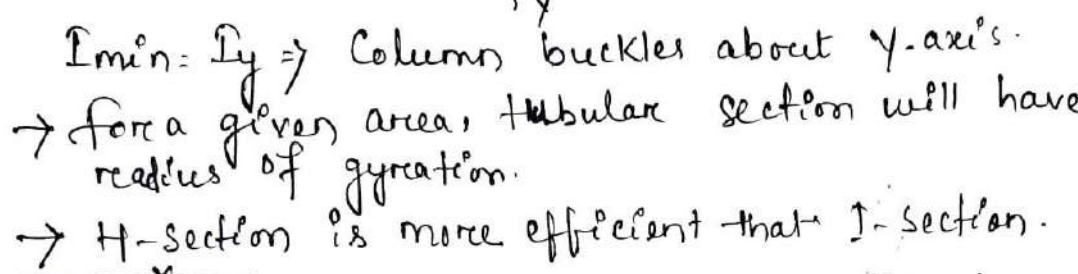 Imin = Iy ⇒ Column buckles about y-axis.
→ for a given area, tubular section will have
radius of gyration.
→ H-section is more efficient that I-section.